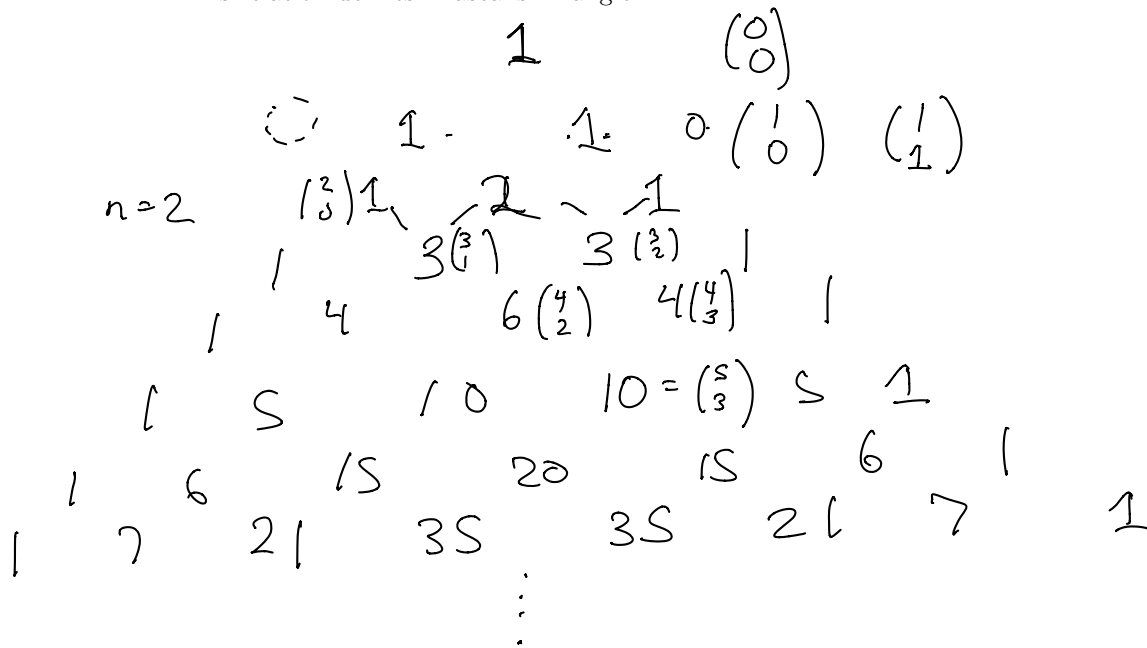 1 (0 0)
1 1 0 (1 0) (1 1)
n=2 (2 0) 1 2 1
1 3 (3 1) 3 (3 2) 1
1 4 6 (4 2) 4 (4 3) 1
1 5 10 10 = (5 3) 5 1
1 6 15 20 15 6 1
1 7 21 35 35 21 7 1
⋮